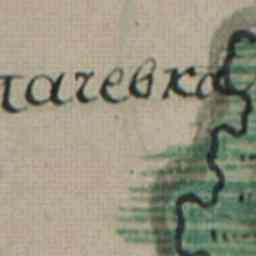 пачевка